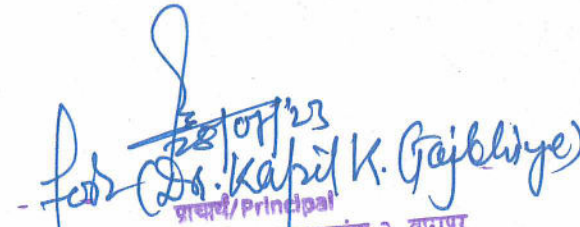 28/07/'23
for (Dr. Kapil K. Gajbhiye)
प्राचार्य/Principal